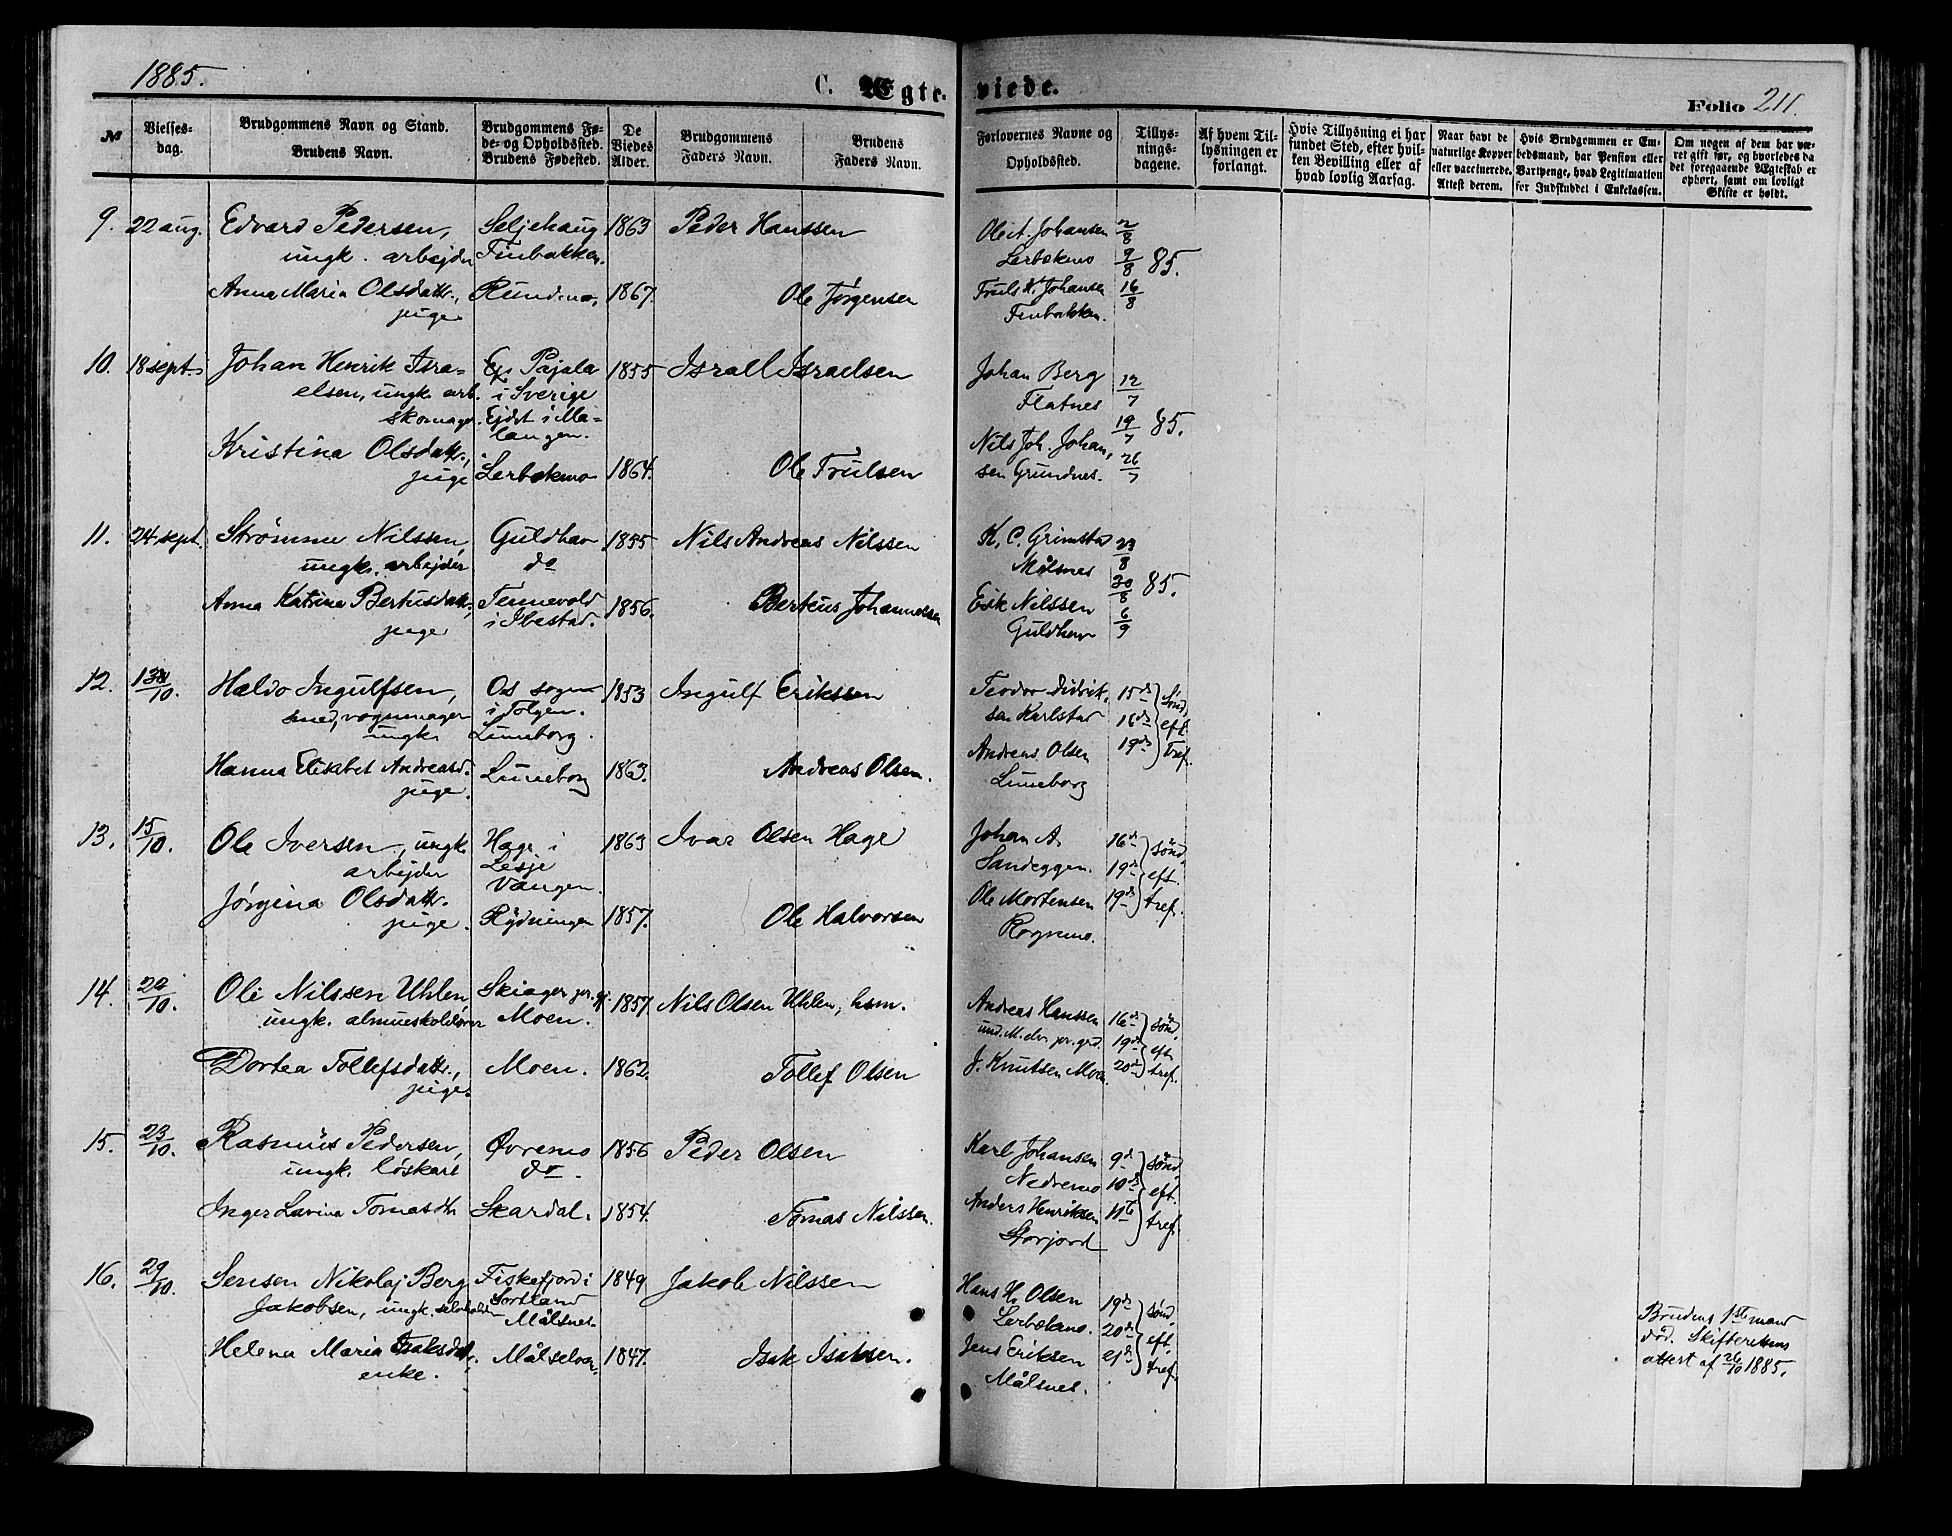 1885.
C. Ægte-
viede.
Folio 211.
№
Vielses-
dag.
Brudgommens Navn og Stand.
Brudens Navn.
Brudgommens Fø-
de- og Opholdsted.
Brudens Fødested.
De
Viedes
Alder.
Brudgommens
Faders Navn.
Brudens
Faders Navn.
Forlovernes Navne og
Opholdssted.
Tillys-
nings-
dagene.
Af hvem Til-
lysningen er
forlangt.
Hvis Tillysning ei har
fundet Sted, efter hvil-
ken Bevilling eller af
hvad lovlig Aarsag.
Naar havt de
naturlige Kopper
eller vaccinerede.
Attest derom.
Hvis Brudgommen er Em-
bedsmand, har Pension eller
Vartpenge, hvad Legitimation
for Indskuddet i Enkekassen.
Om nogen af dem har væ-
ret gift før, og hvorledes da
det foregaaende Ægteskab er
ophørt, samt om lovligt
Skifte er holdt.
9. 22 aug. Edvard Pedersen, Seljehaug 1863 Peder Hanssen
ungk. arbejder Finbakken.
Anna Maria Olsdattr., Rundmo, 1867. Ole Jørgensen
pige
Ole A. Johansen 2/8
Lerbekmo 9/8 85.
Truls H. Johansen 16/8
Finbakken.
10. 18 sept. Johan Henrik Isra- Pajala 1855 Israel Israelsen
elsen, ungk. arb. i Sverige
skomager. Ejdet i Ma-
langen.
Kristina Olsdattr., Lerbekmo 1864. Ole Trulsen
pige
Johan Berg 12/7
Flatnes
19/7 85.
Nils Joh. Johan,
sen Grundnes. 26/7
11. 24 sept. Strømme Nilssen, Guldhav 1855 Nils Andreas Nilssen
ungk. arbejder do
Anna Katrina Bertusdattr., Tennevold 1856. Berteus Johannessen
pige i Ibestad.
K. C. Grimstad 23/8
Målsnes
30/8 85.
Esk Nilssen 6/9
Guldhav
12. 13/10. Haldo Ingulfsen, Os sogn 1853 Ingulf Erikssen
smed, vognmager i Tolgen.
ungk. Luneborg.
Hanna Elisabet Andreasd. Luneborg 1863. Andreas Olsen.
pige.
Teodor Didrik, 15de sønd.
sen Karlstad 16de eft.
Andreas Olsen 19de tref.
Luneborg
13. 15/10. Ole Iversen, ungk. Hage i 1863 Ivar Olsen Hage
arbejder Lesje
Vangen.
Jørgina Olsdattr. Rydningen 1857. Ole Halvorsen
pige.
Johan A. 16de sønd.
Sandeggen. 19de eft.
Ole Mortensen 19de tref.
Rognmo.
14. 20/10. Ole Nilssen Uhlen, Skiager pr. gj. 1857. Nils Olsen Uhlen, hsm.
ungk. almueskolelærer Moen.
Dortea Tollefsdattr., Moen. 1862. Tollef Olsen
pige.
Andreas Hanssen 16de sønd.
und. M.elv pr. grd. 19de eft.
J. Knutsen Moen. 20de tref.
15. 23/10. Rasmus Pedersen, Øvremo 1856 Peder Olsen
ungk. løskarl do.
Inger Lavina Tomasdtr Skardal. 1854. Tomas Nilssen.
Karl Johansen 9de sønd.
Nedremo 10de eft.
Anders Henriksen 11te tref.
Storjord
16. 29/10. Sensen Nikolaj Berg Fiskefjord i 1849 Jakob Nilssen
Jakobsen, ungk. selveholden Sortland
Målsnes.
Helena Maria Isaksdat., Målselven. 1847. Isak Isaksen.
enke.
Hans H. Olsen 19de sønd.
Lerbekmo. 20de eft.
Jens Eriksen tref.
Målsnes.
Brudens 1ste mand
død. Skifterettens
attest af 26/10 1885.